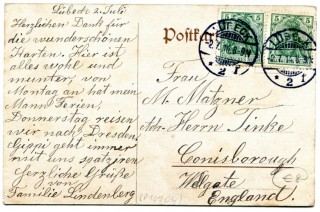 Lübeck 2. Juli
Herzlichen Dank für
die wunderschönen
Karten. Hier ist
alles wohl und
munter, von
Montag an hat mein
Mann Ferien,
Donnerstag reisen
wir nach Dresden.
Gippi geht immer
mit uns spazieren
Herzliche Grüße
von
Familie Lindenberg
Postkarte
LÜBECK
2.7.14.
* 2 f
LÜBECK
2.7.14.
* 2 f
5
5
Frau
M. Matzner
Herrn Tinke
Conisborough
Wellgate
England.
€8